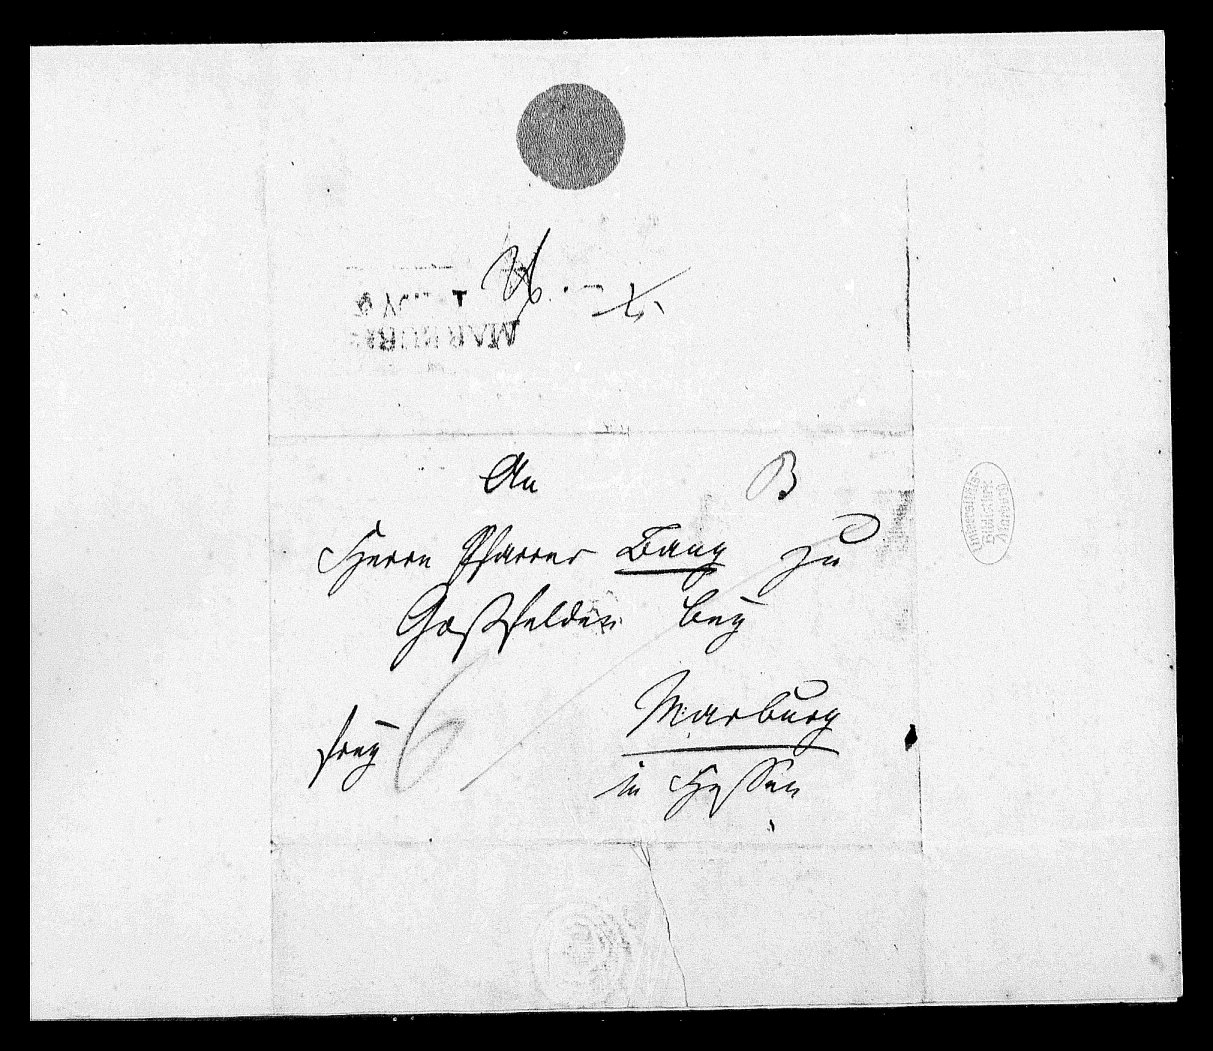 MARBURG
An
B
Herrn Pfarrer Bang zu
Goßfelden bey
Marburg
frey
6
in Hessen
Universitäts-
Bibliothek
Marburg